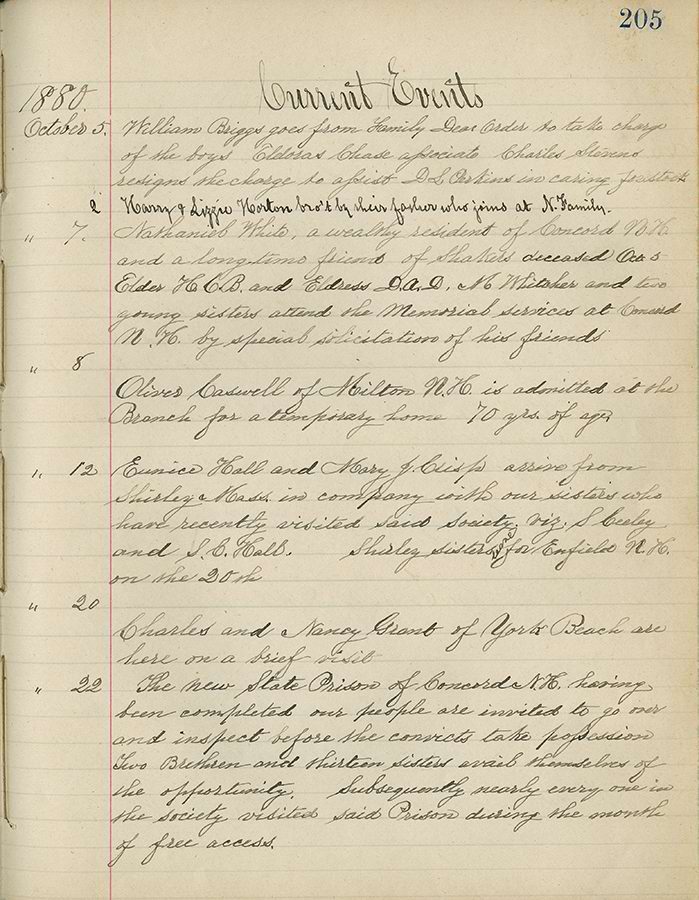 205
Current Events
1880.
October 5. William Briggs goes from Family Dear Order to take charge
of the boys Eldoras Chase associate Charles Stevens
resigns the charge to assist D. S. Perkins in caring for stock
2 Harry & Lizzie Horton bro't by their father who joins at N. Family.
" 7. Nathaniel White, a wealthy resident of Concord N.H.
and a long-time friend of Shakers deceased Oct 5
Elder H.C.B. and Eldress D.A.D. M Whitcher and two
young sisters attend the Memorial services at Concord
N.H. by special solicitation of his friends
" 8
Oliver Caswell of Milton N.H. is admitted at the
Branch for a temporary home 70 yrs. of age
" 12 Eunice Hall and Mary J. Crisp arrive from
Shirley Mass. in company with our sisters who
have recently visited said society, viz. S Ceeley
and S. E. Hall. Shirley sisters leave for Enfield N.H.
on the 20th
" 20
Charles and Nancy Grant of York Beach are
here on a brief visit
" 22 The new State Prison of Concord N.H. having
been completed our people are invited to go over
and inspect before the convicts take possession
Two Brethren and thirteen sisters avail themselves of
the opportunity. Subsequently nearly every one in
the society visited said Prison during the month
of free access.